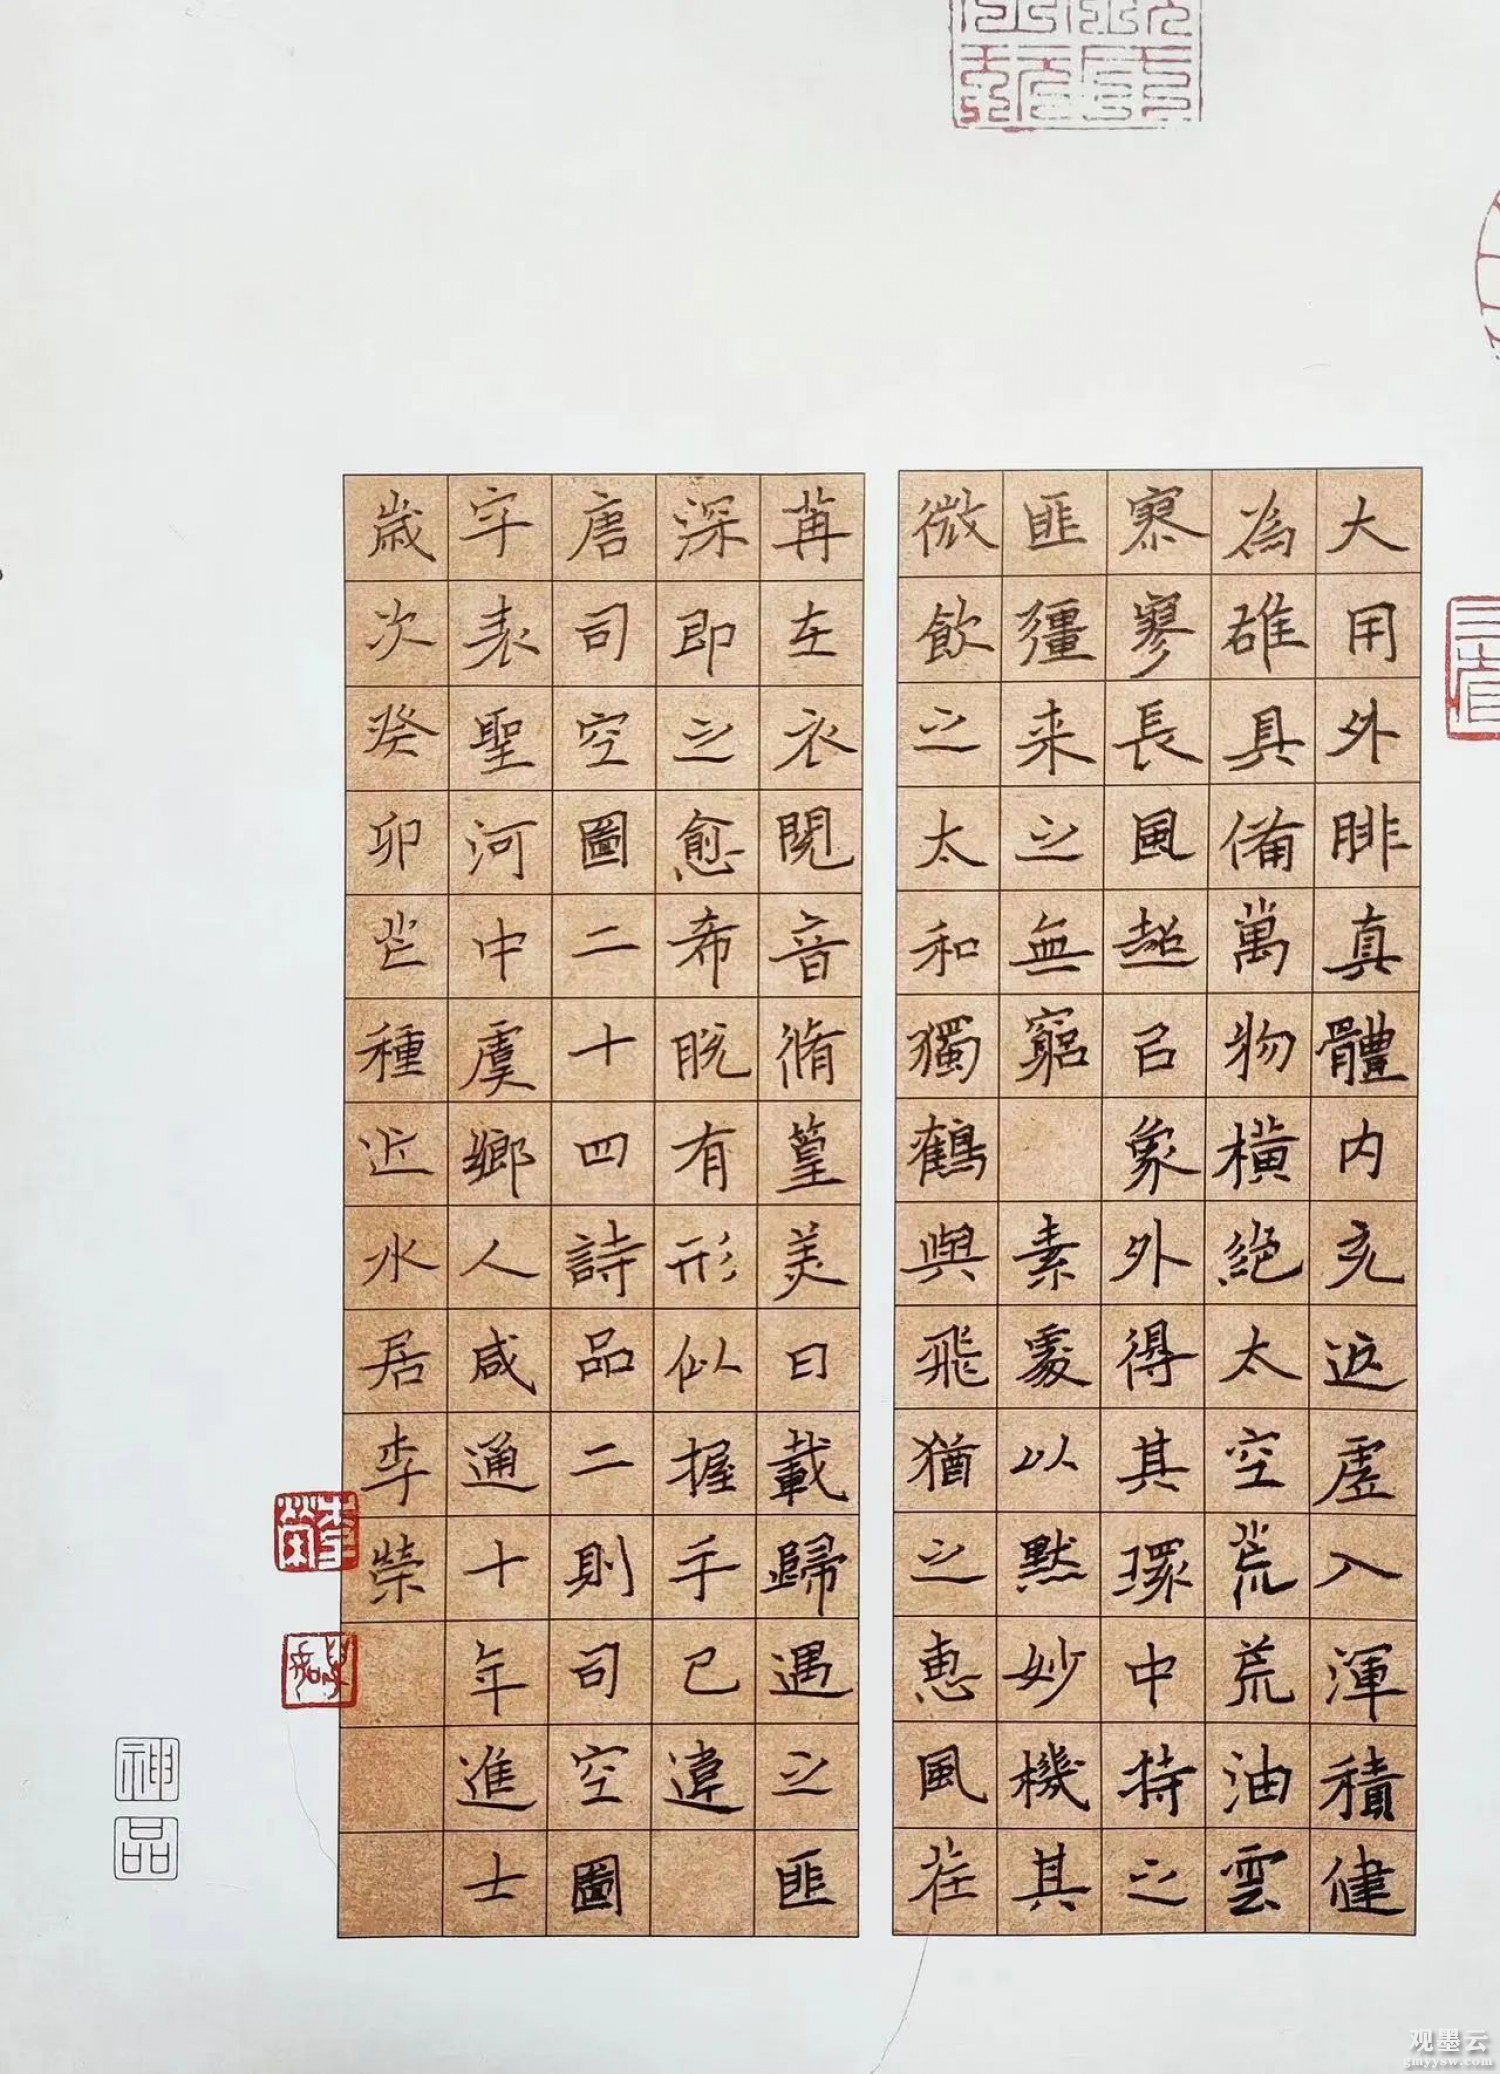 大用外腓真體内充返虛入渾積健
為雄具備萬物橫絕太空荒荒油雲
寥寥長風超以象外得其環中持之
匪彊来之無窮素處以默妙機其
微飲之太和獨鶴與飛猶之惠風荏
苒在衣閱音脩篁美曰載歸遇之匪
深即之愈希脱有形似握手已違
唐司空圖二十四詩品二則司空圖
字表聖河中虞鄉人咸通十年進士
歲次癸卯芒種近水居李榮
神品
观墨云
gmyysw.com